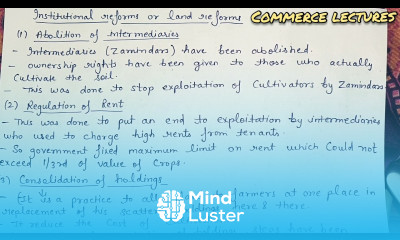 Institutional reforms or land reforms
COMMERCE LECTURES
(1) Abolition of Intermediaries
- Intermediaries (Zamindars) have been abolished.
- ownership rights have been given to those who actually
Cultivate the soil.
- This was done to stop exploitation of Cultivators by Zamindars
(2) Regulation of Rent
- This was done to put an end to exploitation by intermediaries
who used to charge high rents from tenants.
- So government fixed maximum limit on rent which Could not
exceed 1/3rd of value of Crops.
Consolidation of holdings
- It is a practice to farmers at one place in
replacement of his here & there
Mind
Luster
- To reduce the Cost of
have been